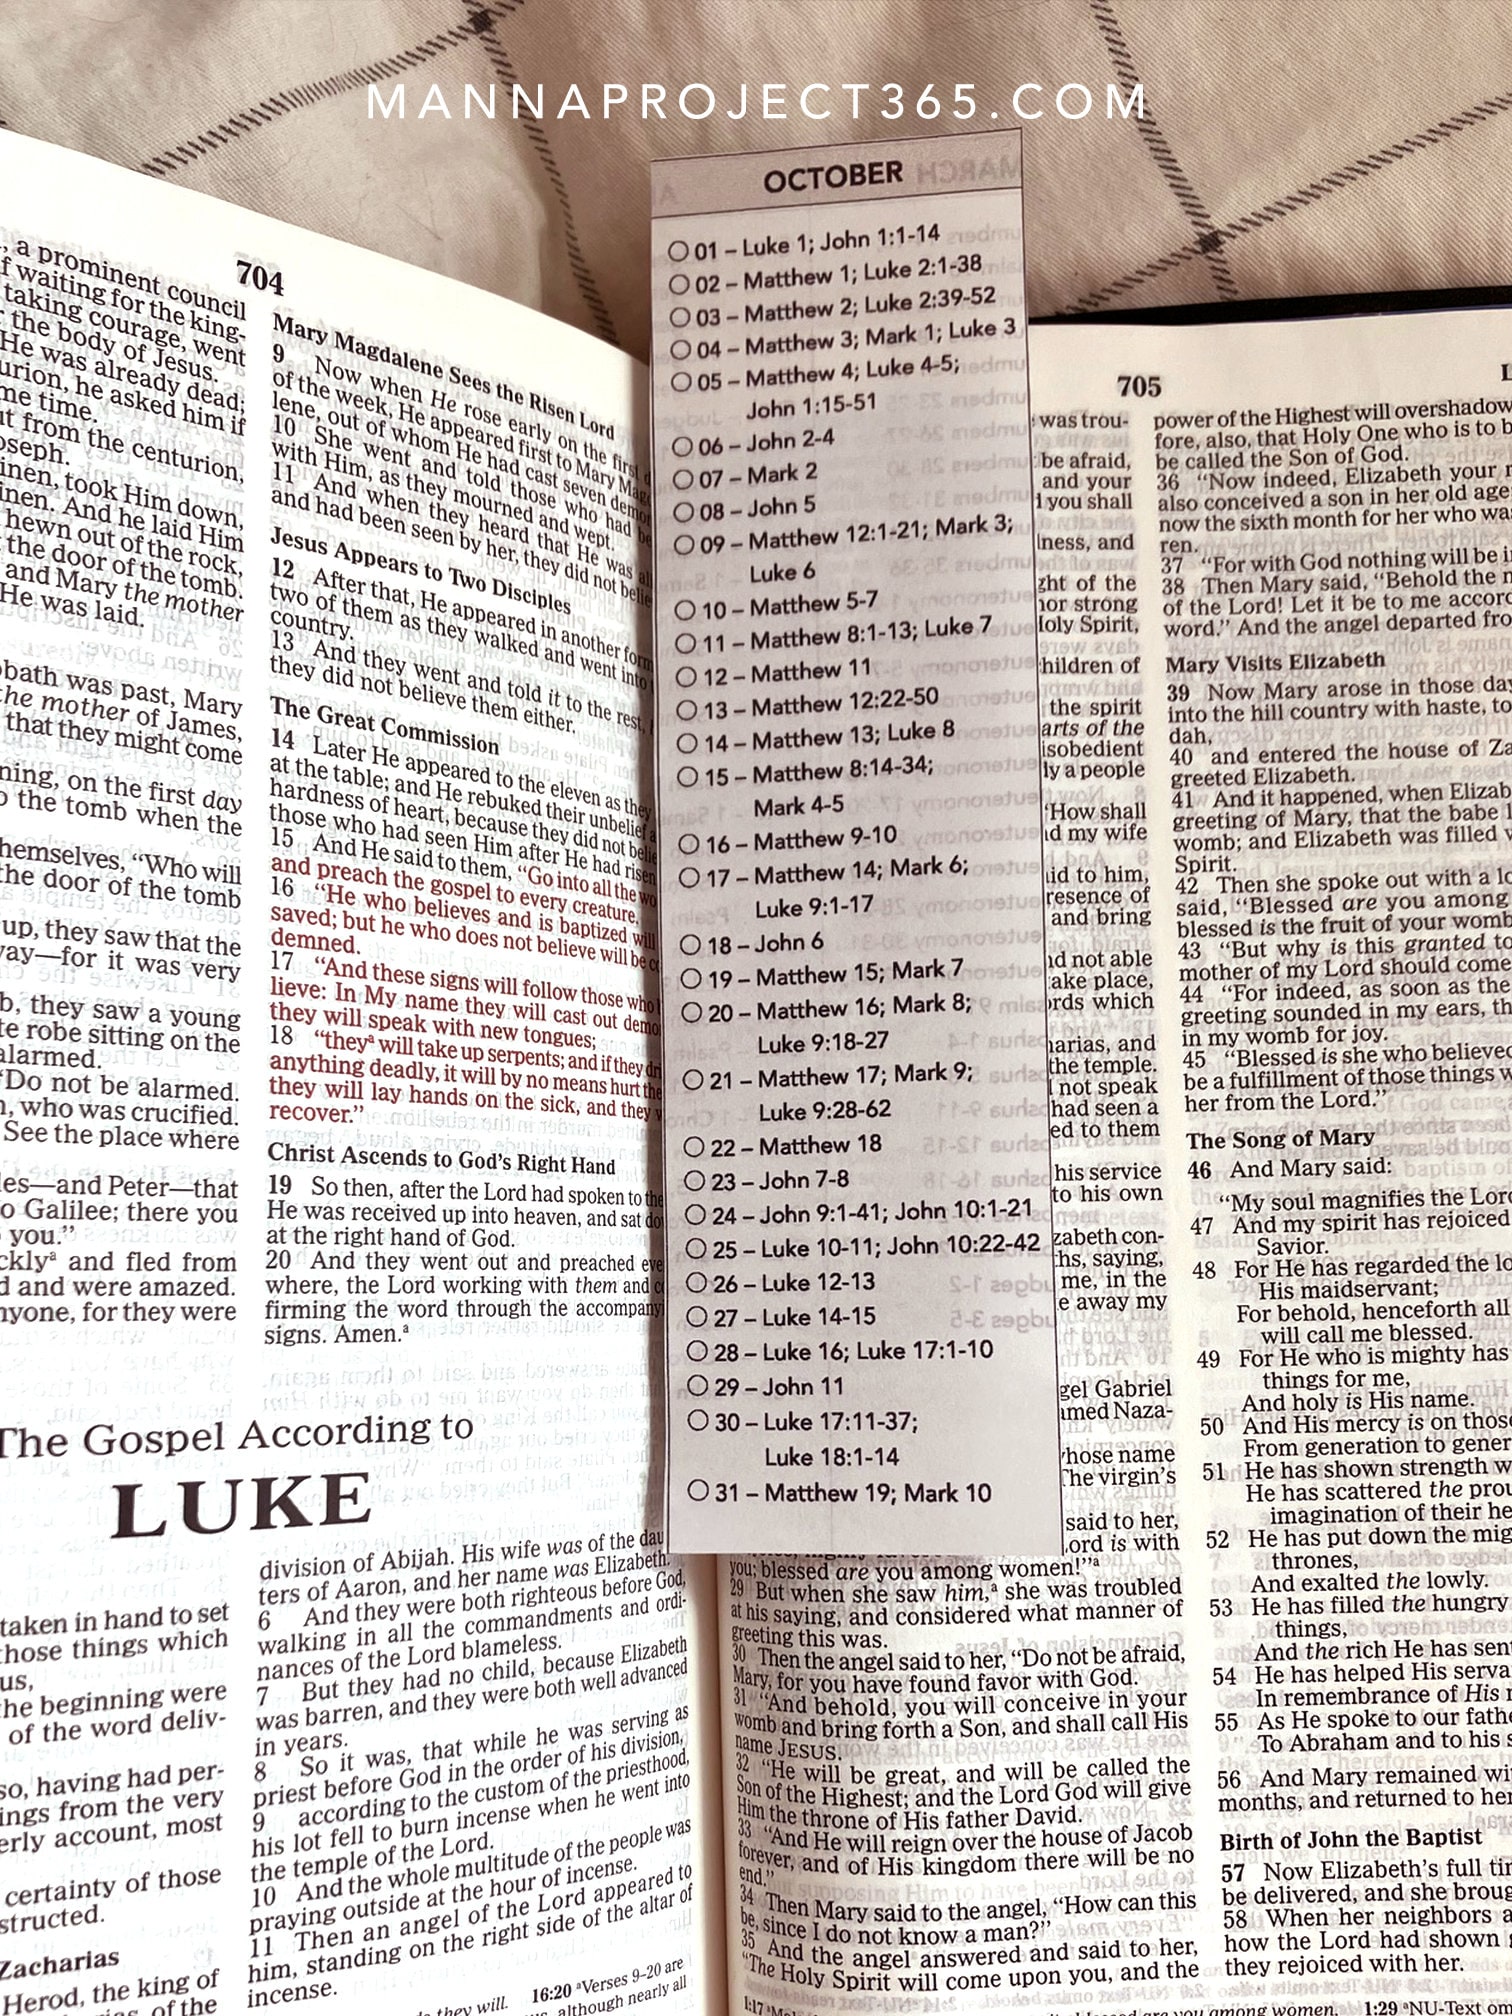 MANNAPROJECT365.COM
OCTOBER
01 – Luke 1; John 1:1-14
02 – Matthew 1; Luke 2:1-38
03 – Matthew 2; Luke 2:39-52
04 – Matthew 3; Mark 1; Luke 3
05 – Matthew 4; Luke 4-5;
John 1:15-51
06 – John 2-4
07 – Mark 2
08 – John 5
09 – Matthew 12:1-21; Mark 3;
Luke 6
10 – Matthew 5-7
11 – Matthew 8:1-13; Luke 7
12 – Matthew 11
13 – Matthew 12:22-50
14 – Matthew 13; Luke 8
15 – Matthew 8:14-34;
Mark 4-5
16 – Matthew 9-10
17 – Matthew 14; Mark 6;
Luke 9:1-17
18 – John 6
19 – Matthew 15; Mark 7
20 – Matthew 16; Mark 8;
Luke 9:18-27
21 – Matthew 17; Mark 9;
Luke 9:28-62
22 – Matthew 18
23 – John 7-8
24 – John 9:1-41; John 10:1-21
25 – Luke 10-11; John 10:22-42
26 – Luke 12-13
27 – Luke 14-15
28 – Luke 16; Luke 17:1-10
29 – John 11
30 – Luke 17:11-37;
Luke 18:1-14
31 – Matthew 19; Mark 10
704
a prominent council
waiting for the king-
taking courage, went
the body of Jesus.
He was already dead;
he asked him if
time.
from the centurion,
took Him down,
And he laid Him
hewn out of the rock,
the door of the tomb.
and Mary the mother
He was laid.
was past, Mary
the mother of James,
that they might come
on the first day
the tomb when the
"Who will
the door of the tomb
up, they saw that the
for it was very
they saw a young
robe sitting on the
"Do not be alarmed.
who was crucified.
See the place where
and Peter—that
Galilee; there you
you."
and fled from
and were amazed.
for they were
Mary Magdalene Sees the Risen Lord
9 Now when He rose early on the first
of the week, He appeared first to Mary
lene, out of whom He had cast seven
10 She went and told those who had
with Him, as they mourned and wept.
11 And when they heard that He was
and had been seen by her, they did not
Jesus Appears to Two Disciples
12 After that, He appeared in another form
two of them as they walked and went into
country.
13 And they went and told it to the rest,
they did not believe them either.
The Great Commission
14 Later He appeared to the eleven as they
at the table; and He rebuked their unbelief
hardness of heart, because they did not
those who had seen Him after He had risen
15 And He said to them, "Go into all the
and preach the gospel to every creature.
16 "He who believes and is baptized will
saved; but he who does not believe will be
demned.
17 "And these signs will follow those who
lieve: In My name they will cast out
they will speak with new tongues;
18 "theyª will take up serpents; and if they
anything deadly, it will by no means hurt the
they will lay hands on the sick, and they
recover."
Christ Ascends to God's Right Hand
19 So then, after the Lord had spoken to the
He was received up into heaven, and sat
at the right hand of God.
20 And they went out and preached
where, the Lord working with them and
firming the word through the
signs. Amen.ª
The Gospel According to
LUKE
taken in hand to set
those things which
the beginning were
of the word deliv-
so, having had per-
from the very
account, most
certainty of those
Zacharias
Herod, the king of
of the
division of Abijah. His wife was of the
ters of Aaron, and her name was Elizabeth.
6 And they were both righteous before God,
walking in all the commandments and ordi-
nances of the Lord blameless.
7 But they had no child, because Elizabeth
was barren, and they were both well advanced
in years.
8 So it was, that while he was serving as
priest before God in the order of his division,
9 according to the custom of the priesthood,
his lot fell to burn incense when he went into
the temple of the Lord.
10 And the whole multitude of the people was
praying outside at the hour of incense.
11 Then an angel of the Lord appeared to
him, standing on the right side of the altar of
incense.
they will.
16:20 ªVerses 9–20 are
although nearly all
705
was trou-
be afraid,
and your
you shall
and
of the
nor strong
Holy Spirit,
children of
the spirit
of the
ly a people
'How shall
my wife
to him,
and bring
not able
take place,
which
and
the temple.
not speak
had seen a
ed to them
his service
to his own
con-
saying,
me, in the
away my
Gabriel
whose name
The virgin's
said to her,
is with
you; blessed are you among women!"ª
29 But when she saw him,ª she was troubled
at his saying, and considered what manner of
greeting this was.
30 Then the angel said to her, "Do not be afraid,
Mary, for you have found favor with God.
31 "And behold, you will conceive in your
womb and bring forth a Son, and shall call His
name JESUS.
32 "He will be great, and will be called the
Son of the Highest; and the Lord God will give
Him the throne of His father David.
33 "And He will reign over the house of Jacob
forever, and of His kingdom there will be no
end."
34 Then Mary said to the angel, "How can this
be, since I do not know a man?"
35 And the angel answered and said to her,
"The Holy Spirit will come upon you, and the
power of the Highest will overshadow
fore, also, that Holy One who is to
be called the Son of God.
36 "Now indeed, Elizabeth your
also conceived a son in her old age
now the sixth month for her who
ren.
37 "For with God nothing will be
38 Then Mary said, "Behold the
of the Lord! Let it be to me
word." And the angel departed
Mary Visits Elizabeth
39 Now Mary arose in those
into the hill country with haste, to
dah,
40 and entered the house of
greeted Elizabeth.
41 And it happened, when
greeting of Mary, that the babe
womb; and Elizabeth was filled
Spirit.
42 Then she spoke out with a
said, "Blessed are you among
blessed is the fruit of your womb
43 "But why is this granted to
mother of my Lord should come
44 "For indeed, as soon as the
greeting sounded in my ears,
in my womb for joy.
45 "Blessed is she who believed
be a fulfillment of those things
her from the Lord."
The Song of Mary
46 And Mary said:
"My soul magnifies the
47 And my spirit has rejoiced
Savior.
48 For He has regarded the
His maidservant;
For behold, henceforth all
will call me blessed.
49 For He who is mighty has
things for me,
And holy is His name.
50 And His mercy is on
From generation to
51 He has shown strength
He has scattered the
imagination of their
52 He has put down the
thrones,
And exalted the lowly.
53 He has filled the hungry
things,
And the rich He has
54 He has helped His
In remembrance of His
55 As He spoke to our
To Abraham and to his
56 And Mary remained
months, and returned to
Birth of John the Baptist
57 Now Elizabeth's full
be delivered, and she
58 When her neighbors
how the Lord had shown
they rejoiced with her.
you among women.
1:29 ªNU-Text